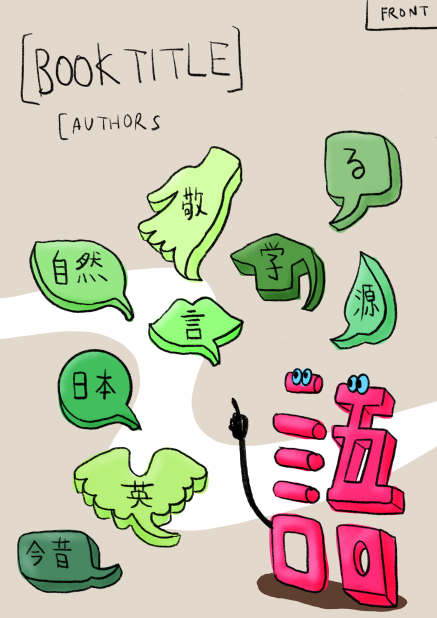 FRONT
[BOOK TITLE]
[AUTHORS
る
敬
学
自然
源
言
日本
英
今昔
語